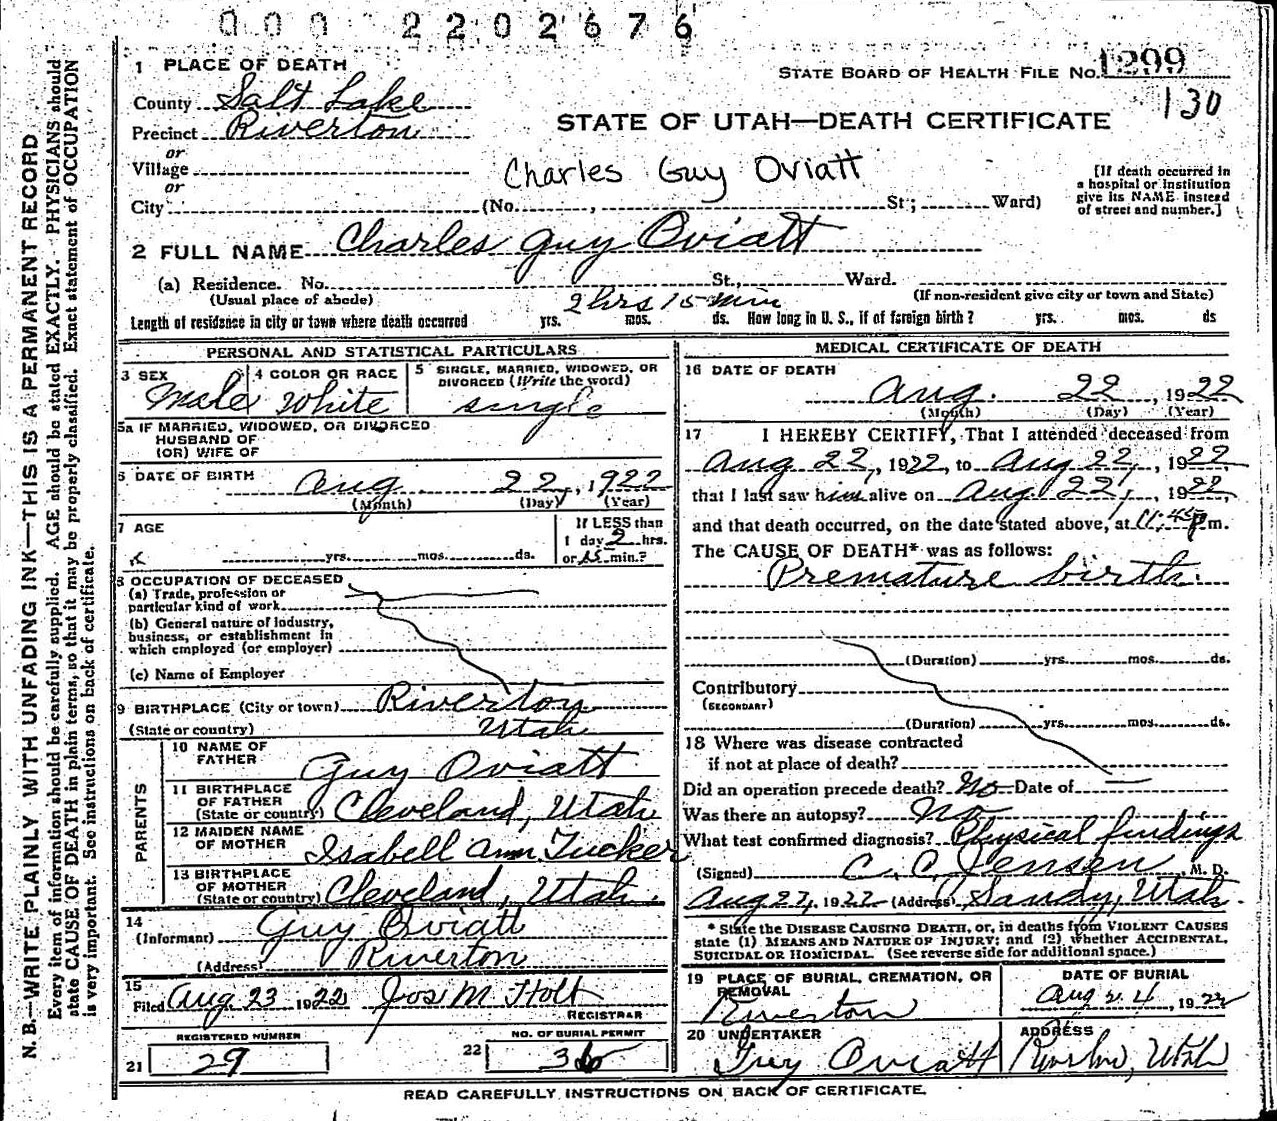 000 2202676
1 PLACE OF DEATH
STATE BOARD OF HEALTH FILE No. 1299
130
County Salt Lake
Precinct Riverton
STATE OF UTAH—DEATH CERTIFICATE
or
Village
Charles Guy Oviatt
or
City (No. , St; Ward)
[If death occurred in
a hospital or Institution
give its NAME instead
of street and number.]
2 FULL NAME Charles Guy Oviatt
(a) Residence. No. St., Ward.
(Usual place of abode) (If non-resident give city or town and State)
2 hrs 15 min
Length of residence in city or town where death occurred yrs. mos. ds. How long in U. S., if of foreign birth? yrs. mos. ds
PERSONAL AND STATISTICAL PARTICULARS
3 SEX Male
4 COLOR OR RACE White
5 SINGLE, MARRIED, WIDOWED, OR
DIVORCED (Write the word)
single
5a IF MARRIED, WIDOWED, OR DIVORCED
HUSBAND OF
(OR) WIFE OF
6 DATE OF BIRTH Aug. 22, 1922
(Month) (Day) (Year)
7 AGE
yrs. mos. ds.
If LESS than
1 day 2 hrs.
or 15 min.?
8 OCCUPATION OF DECEASED
(a) Trade, profession or
particular kind of work
(b) General nature of industry,
business, or establishment in
which employed (or employer)
(c) Name of Employer
9 BIRTHPLACE (City or town) Riverton
(State or country) Utah
PARENTS
10 NAME OF
FATHER Guy Oviatt
11 BIRTHPLACE
OF FATHER
(State or country) Cleveland, Utah
12 MAIDEN NAME
OF MOTHER Isabell Ann Tucker
13 BIRTHPLACE
OF MOTHER
(State or country) Cleveland, Utah.
14
(Informant) Guy Oviatt
(Address) Riverton
15
Filed Aug. 23 1922 Jos M Holt
REGISTRAR
REGISTERED NUMBER
21 29
NO. OF BURIAL PERMIT
22 36
MEDICAL CERTIFICATE OF DEATH
16 DATE OF DEATH
Aug. 22, 1922
(Month) (Day) (Year)
17 I HEREBY CERTIFY, That I attended deceased from
Aug 22, 1922, to Aug 22, 1922
that I last saw him alive on Aug. 22, 1922,
and that death occurred, on the date stated above, at 11:45 p m.
The CAUSE OF DEATH* was as follows:
Premature birth.
(Duration) yrs. mos. ds.
Contributory
(SECONDARY)
(Duration) yrs. mos. ds.
18 Where was disease contracted
if not at place of death?
Did an operation precede death? No Date of
Was there an autopsy? No
What test confirmed diagnosis? Physical findings
(Signed) C. C. Jensen, M. D.
Aug 22, 1922 (Address) Sandy, Utah.
* State the DISEASE CAUSING DEATH, or, in deaths from VIOLENT CAUSES
state (1) MEANS AND NATURE OF INJURY; and (2) whether ACCIDENTAL,
SUICIDAL OR HOMICIDAL. (See reverse side for additional space.)
19 PLACE OF BURIAL, CREMATION, OR
REMOVAL
Riverton
DATE OF BURIAL
Aug 24, 1922
20 UNDERTAKER
Guy Oviatt
ADDRESS
Riverton, Utah
READ CAREFULLY INSTRUCTIONS ON BACK OF CERTIFICATE.
N. B.—WRITE PLAINLY WITH UNFADING INK—THIS IS A PERMANENT RECORD
Every item of information should be carefully supplied. AGE should be stated EXACTLY. PHYSICIANS should
state CAUSE OF DEATH in plain terms, so that it may be properly classified. Exact statement of OCCUPATION
is very important. See instructions on back of certificate.